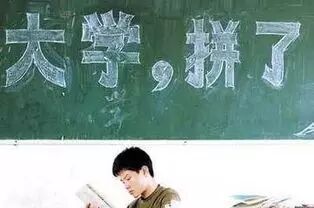 大学,拼了